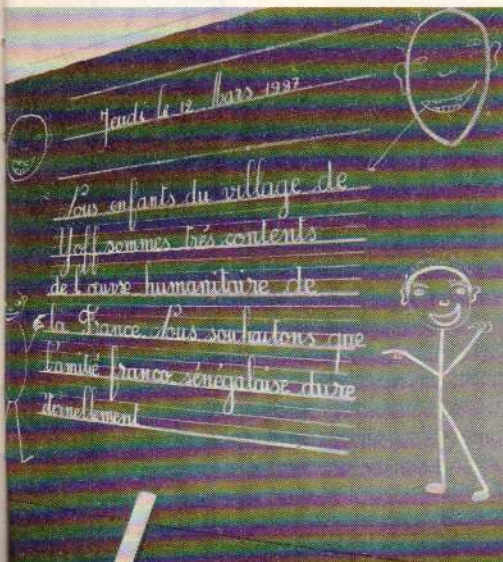 Jeudi le 12 Mars 1987
Nous enfants du village de
Yoff sommes très contents
de l'ouvre humanitaire de
la France. Nous souhaitons que
l'amitié franco sénégalaise dure
éternellement